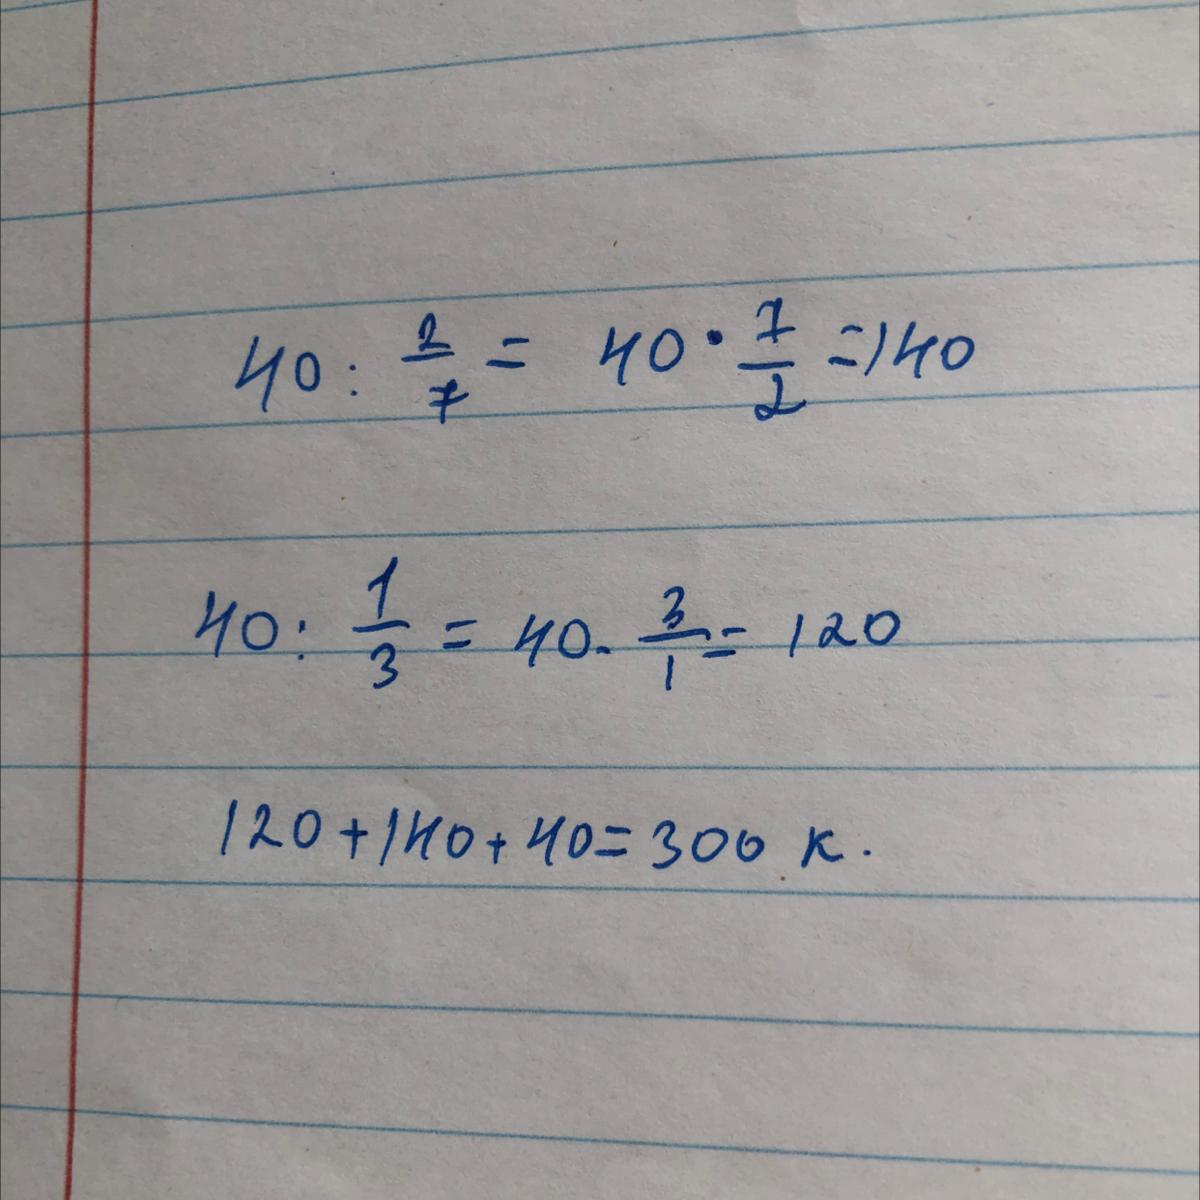 40 : 2/7 = 40 · 7/2 = 140
40 : 1/3 = 40 · 3/1 = 120
120 + 140 + 40 = 300 к.